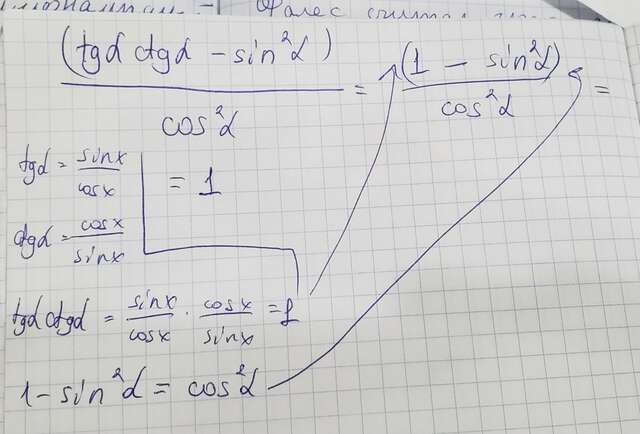 Фалес считал
(tgα ctgα − sin²α) / cos²α = (1 − sin²α) / cos²α =
= 1
tgα = sinx / cosx
ctgα = cosx / sinx
tgα ctgα = sinx / cosx · cosx / sinx = 1
1 − sin²α = cos²α